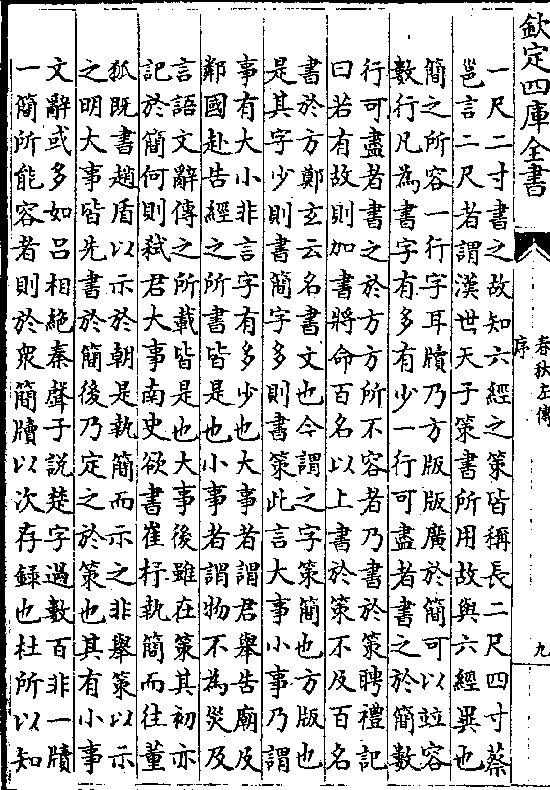 欽定四庫全書
春秋左傳
序
九
一尺二寸書之故知六經之策皆稱長二尺四寸蔡
邕言二尺者謂漢世天子策書所用故與六經異也
簡之所容一行字耳牘乃方版版廣於簡可以竝容
數行凡為書字有多有少一行可盡者書之於簡數
行可盡者書之於方方所不容者乃書於策聘禮記
曰若有故則加書將命百名以上書於策不及百名
書於方鄭玄云名書文也今謂之字策簡也方版也
是其字少則書簡字多則書策此言大事小事乃謂
事有大小非言字有多少也大事者謂君舉告廟及
鄰國赴告經之所書皆是也小事者謂物不為災及
言語文辭傳之所載皆是也大事後雖在策其初亦
記於簡何則弑君大事南史欲書崔杼執簡而往董
狐既書趙盾以示於朝是執簡而示之非舉策以示
之明大事皆先書於簡後乃定之於策也其有小事
文辭或多如呂相絶秦聲子說楚字過數百非一牘
一簡所能容者則於衆簡牘以次存録也杜所以知